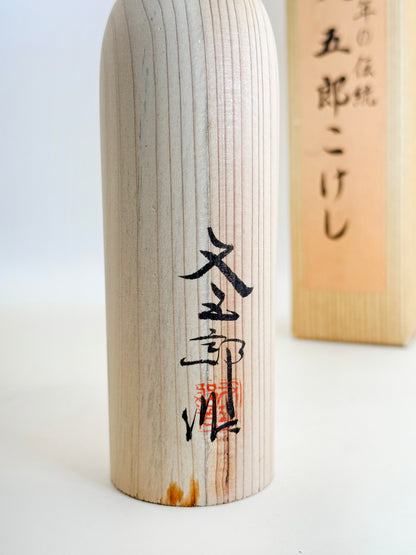 文五郎作
年の伝統
五郎こけし